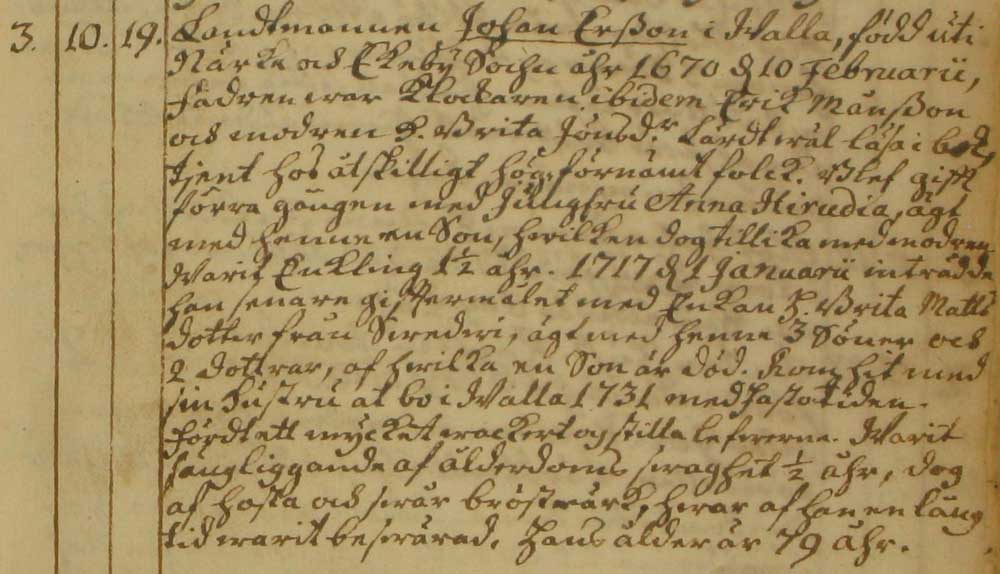 3. 10. 19. Landtmannen Johan Erßon i Walla, född uti
Närke och Ekeby Sochn åhr 1670 d 10 Februarii,
fadren war Klockaren ibidem Erik Månßon
och modren h. Brita Jönsdr. Lärdt wäl läsa i bok,
tjent hos åtskilligt hög förnämt folck. Blef gift
förra gången med Jungfru Anna Hirudia, ägt
med henne en Son, hwilken dog tillika med modren
Warit Enkling 1½ åhr. 1717 d 1 Januarii inträdde
han senare giftermålet med Enkan h. Brita Matts
dotter från, ägt med henne 3 Söner och
2 dottrar, af hwilka en Son är död. Kom hit med
sin hustru at bo i Walla 1731 med fastotiden.
fördt ett mycket wackert og stilla lefwerne. Warit
sängliggande af ålderdoms swaghet ½ åhr, dog
af hosta och swår bröstwärk, hwar af han en lång
tid warit beswärad. Hans ålder är 79 åhr.